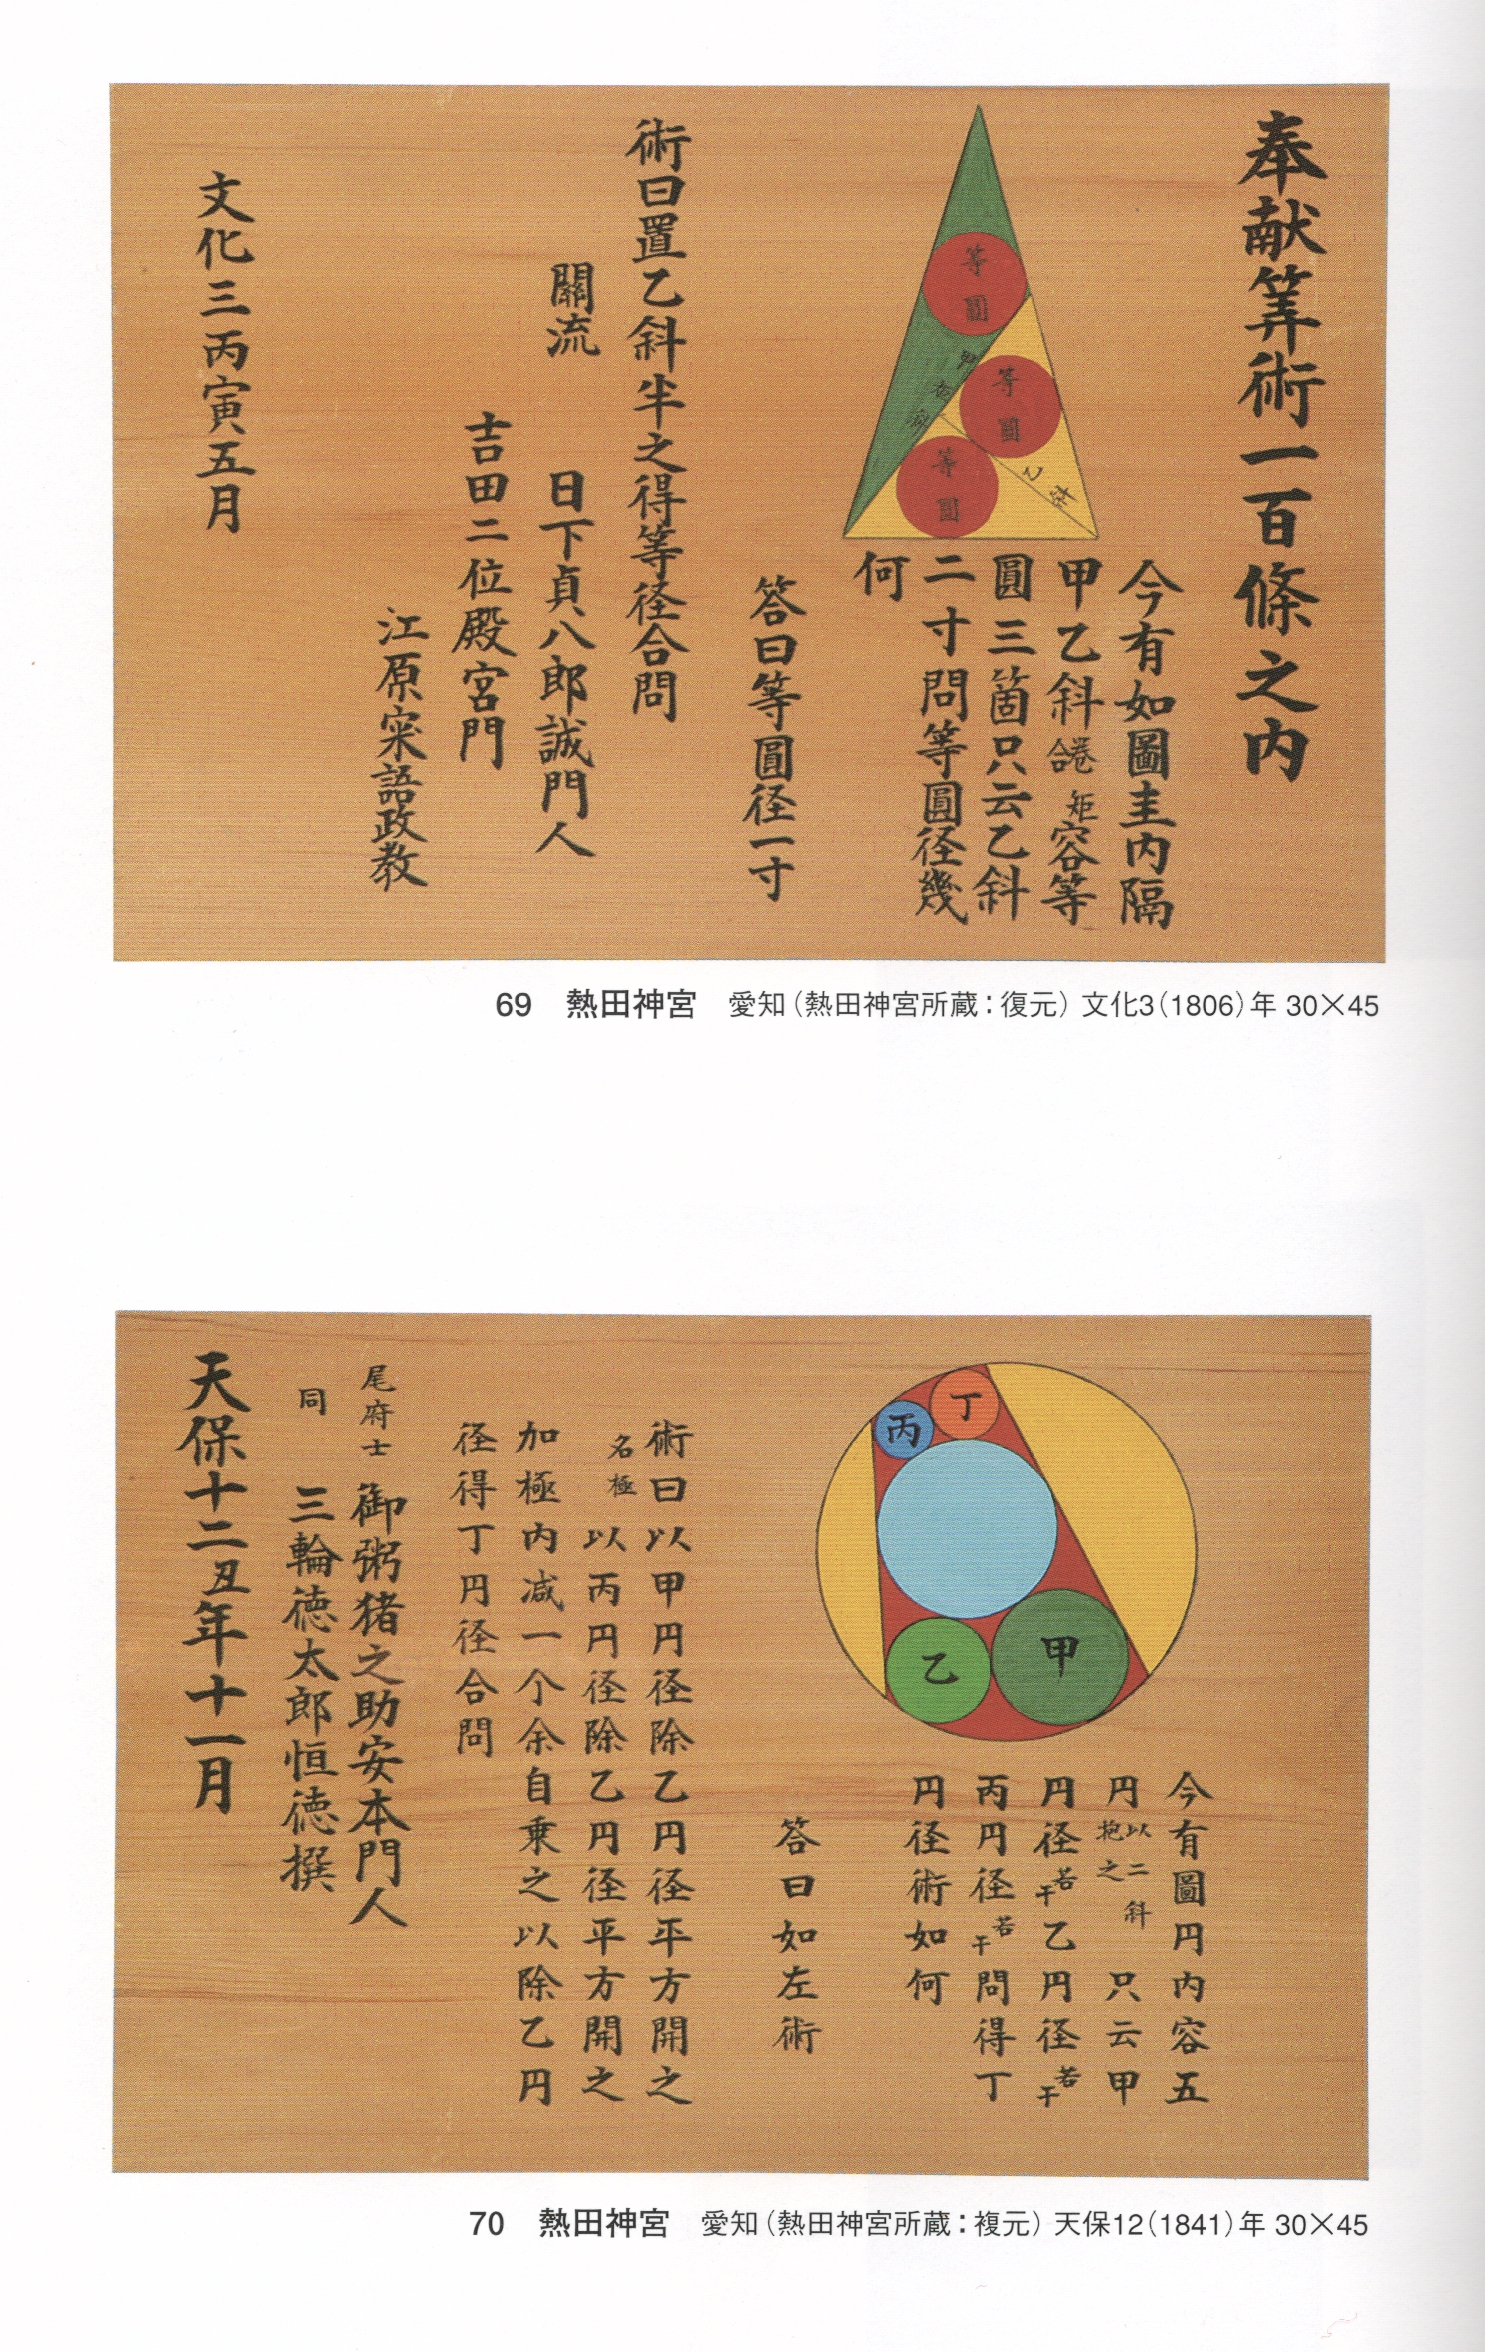 奉献筭術一百條之内
今有如圖圭内隔
甲乙斜合巻矩容等
圓三箇只云乙斜
二寸問等圓径幾
何
等圓
等圓
等圓
甲斜
乙斜
答曰等圓径一寸
術曰置乙斜半之得等径合問
關流 日下貞八郎誠門人
吉田二位殿宮門
江原寀語政教
文化三丙寅五月
69 熱田神宮 愛知（熱田神宮所蔵：復元）文化3（1806）年 30×45
丁
丙
乙
甲
今有圖円内容五
円以二斜抱之只云甲
円径若干乙円径若干
丙円径若干問得丁
円径術如何
答曰如左術
術曰以甲円径除乙円径平方開之
名極以丙円径除乙円径平方開之
加極内減一个余自乗之以除乙円
径得丁円径合問
尾府士 御粥猪之助安本門人
同 三輪徳太郎恒徳撰
天保十二丑年十一月
70 熱田神宮 愛知（熱田神宮所蔵：複元）天保12（1841）年 30×45